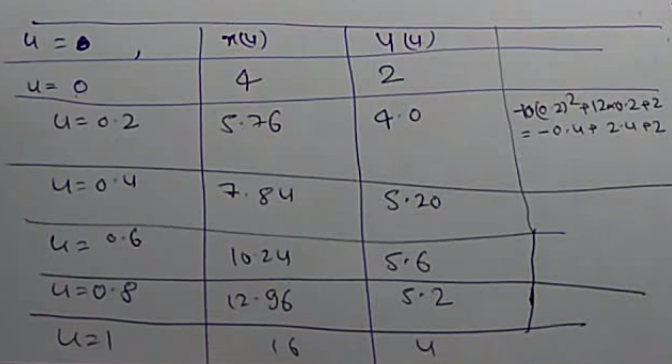 u = 0, x(u) y(u)
u = 0 4 2
u = 0.2 5.76 4.0 -10(0.2)²+12×0.2+2
= -0.4+ 2.4+2
u = 0.4 7.84 5.20
u = 0.6 10.24 5.6
u = 0.8 12.96 5.2
u = 1 16 4